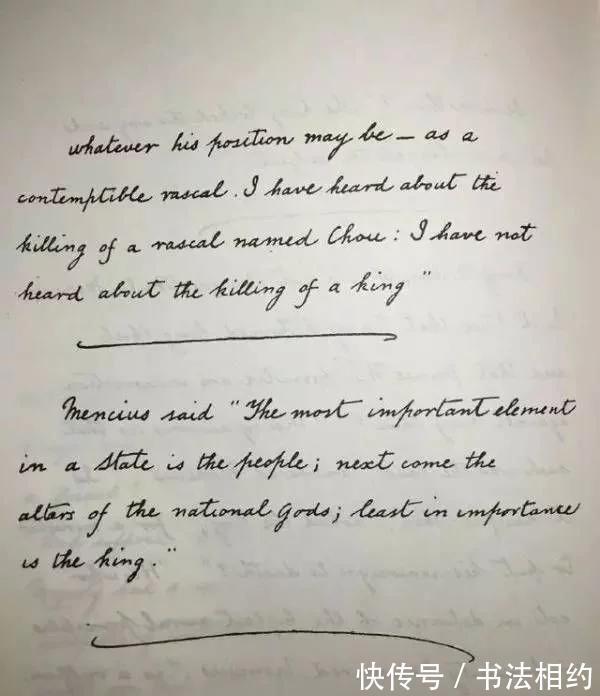 whatever his position may be — as a
contemptible rascal. I have heard about the
killing of a rascal named Chou: I have not
heard about the killing of a king"
Mencius said "The most important element
in a State is the people; next come the
altars of the national Gods; least in importance
is the king."
快传号 / 书法相约